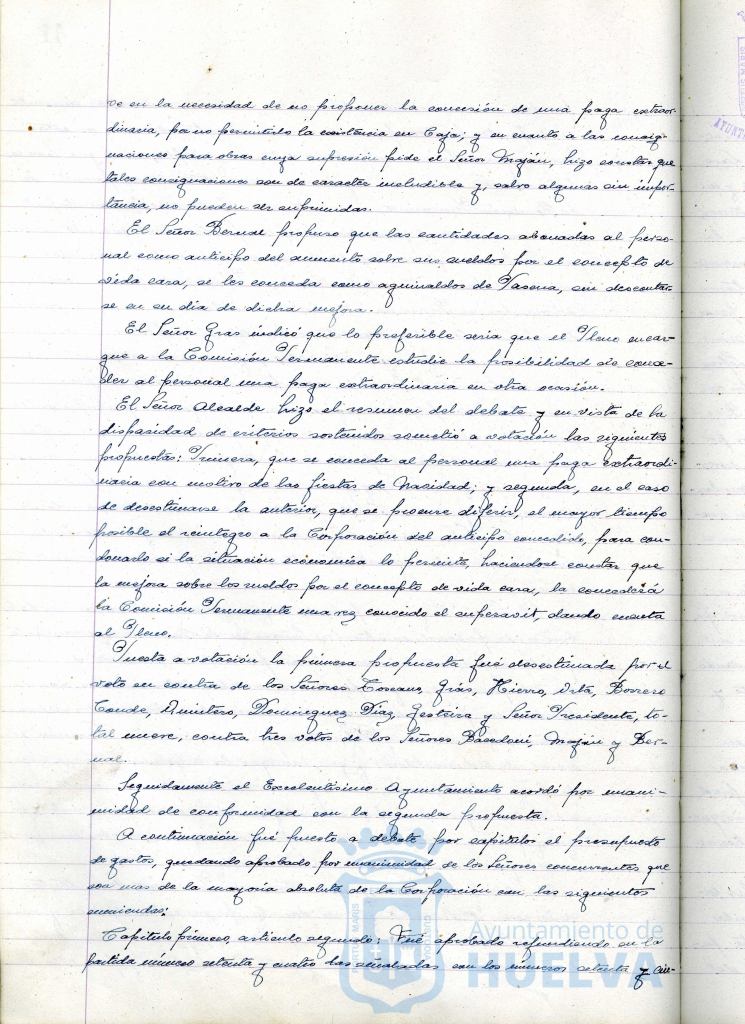 ve en la necesidad de no proponer la concesión de una paga extraor-
dinaria, pa no permitirlo la existencia en Caja; y en cuanto a las consig-
naciones para obras cuya supresión pide el Señor Maján, hizo constar que
tales consignaciones son de caracter ineludible y, salvo algunas sin impor-
tancia, no pueden ser suprimidas.
El Señor Bernal propuso que las cantidades abonadas al perso-
nal como anticipo del aumento sobre sus sueldos por el concepto de
vida cara, se les conceda como aguinaldos de Pascua, sin descontar-
se en su día de dicha mejora.
El Señor Gras indicó que lo preferible seria que el Pleno encar-
gue a la Comisión Permanente estudie la posibilidad de conce-
der al personal una paga extraordinaria en otra ocasión.
El Señor Alcalde hizo el resumen del debate y en vista de la
disparidad de criterios sostenidos sometió a votación las siguientes
propuestas: Primera, que se conceda al personal una paga extraordi-
naria con motivo de las fiestas de Navidad; y segunda, en el caso
de desestimarse la anterior, que se procure diferir, el mayor tiempo
posible el reintegro a la Corporación del anticipo concedido, para con-
donarlo si la situación económica lo permite, haciendose constar que
la mejora sobre los sueldos por el concepto de vida cara, la concederá
la Comisión Permanente una vez conocido el superavit, dando cuenta
al Pleno.
Puesta a votación la primera propuesta fué desestimada por el
voto en contra de los Señores Toscano, Grás, Hierro, Orta, Borrero
Conde, Quintero, Dominguez Díaz, Gesteira y Señor Presidente, to-
tal nueve, contra tres votos de los Señores Basedoni, Maján y Ber-
nal.
Seguidamente el Excelentísimo Ayuntamiento acordó por unani-
midad de conformidad con la segunda propuesta.
A continuación fué puesto a debate por capitulos el presupuesto
de gastos, quedando aprobado por unanimidad de los Señores concurrentes que
son mas de la mayoría absoluta de la Corporación con las siguientes
enmiendas:
Capitulo primero, articulo segundo: Fué aprobado refundiendo en la
partida número setenta y cuatro las señaladas con los números setenta y cin-
Ayuntamiento de
HUELVA